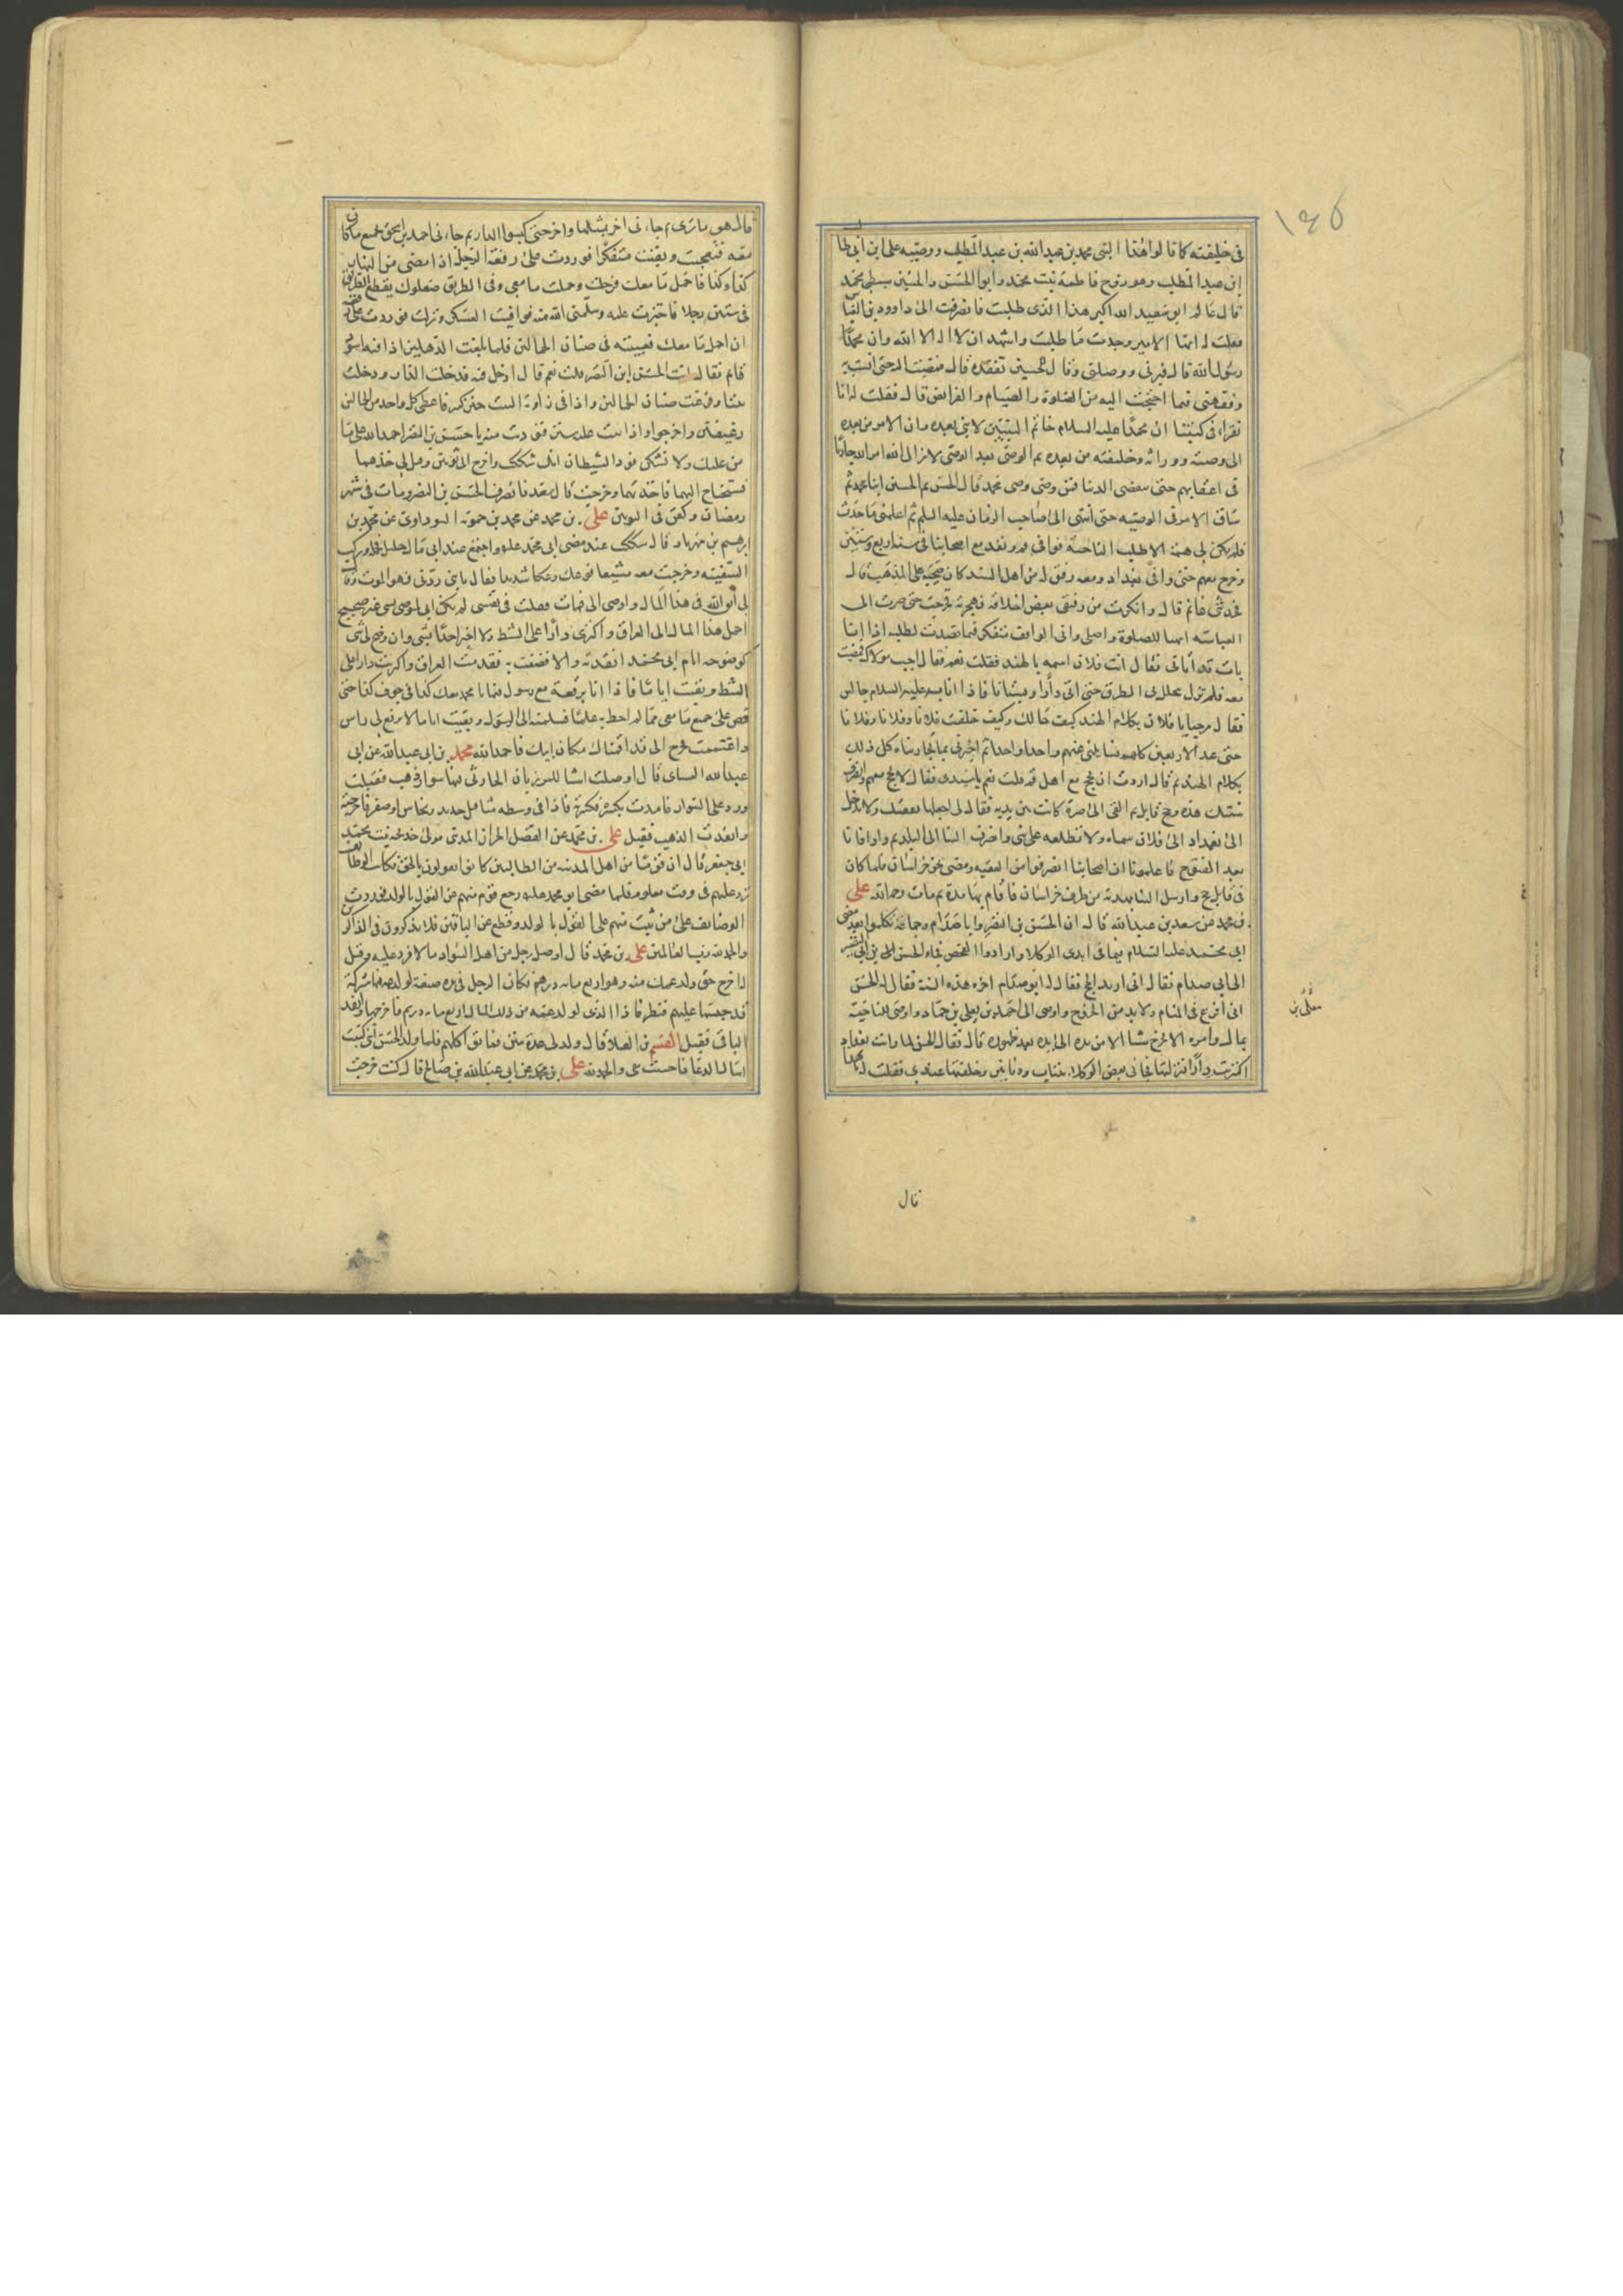 ١٤٥
فى خليفته كما قالوا هذا النبى محمد بن عبد الله بن عبد المطلب ووصيه على ابن ابى طا
ابن عبد المطلب وهو زوج فاطمة بنت محمد وابو الحسن والحسين سبطى محمد
قال غانم ابو سعيد الله اكبر هذا الذى طلبت فانصرفت الى داوود بن العبا
فقلت له ايها الامير وجدت ما طلبت واشهد ان لا اله الا الله وان محمدا
رسول الله قال فبرنى ووصلنى وقال للحسين تفقده قال فمضيت اليه حتى انست به
وفقهنى فيما احتجت اليه من الصلوة والصيام والفرايض قال فقلت له انا
نقراء فى كتبنا ان محمدا عليه السلام خاتم النبيين لا نبى بعده وان الامر من بعده
الى وصيه ووارثه وخليفته من بعده ثم الوصى بعد الوصى لا يزال امر الله جاريا
فى اعقابهم حتى تنقضى الدنيا فمن وصى وصى محمد قال الحسن ثم الحسين ابنا محمد ثم
ساق الامر فى الوصيه حتى انتهى الى صاحب الزمان عليه السلم ثم اعلمنى ما حدث
فلم يكن لى همة الا طلب الناحية فوافى قم وقعد مع اصحابنا فى سنة اربع وستين
وخرج معهم حتى وافى بغداد ومعه رفيق له من اهل السند كان صحبه على المذهب قال
فحدثنى غانم قال وانكرت من رفيقى بعض اخلاقه فهجرته وخرجت حتى صرت الى
العباسيه اتهيا للصلوة واصلى وانى لواقف متفكر فيما قصدت لطلبه اذا انا
بات قد اتانى فقال انت فلان اسمه بالهند فقلت نعم فقال اجب مولاك فمضيت
معه فلم يزل يتخلل بى الطرق حتى اتى دارا وبستانا فاذا انا به عليه السلام جالس
فقال مرحبا يا فلان بكلام الهند كيف حالك وكيف خلفت فلانا وفلانا وفلانا
حتى عد الاربعين كلهم فسايلنى عنهم واحدا واحدا ثم اخبرنى بما تجارينا كل ذلك
بكلام الهند ثم قال اردت ان تحج مع اهل قم قلت نعم يا سيدى فقال لا تحج معهم وانصرف
سنتك هذه وحج فى قابل ثم القى الى صرة كانت بين يديه فقال لى اجعلها نفقتك ولا تدخل
الى بغداد الى فلان سماه ولا تطلعه على شى وانصرف الينا الى البلد ثم وافانا
بعد الفتوح فاعلمونا ان اصحابنا انصرفوا من العقبه ومضى نحو خراسان فلما كان
فى قابل حج وارسل الينا بهدية من طرف خراسان فاقام بها مدة ثم مات رحمه الله على
بن محمد عن سعد بن عبد الله قال ان الحسن بن النضر وابا صدام وجماعة تكلموا بعد مضى
ابى محمد عليه السلام فيما فى ايدى الوكلا وارادوا الفحص فجاء الحسن بن النضر
الى ابى صدام فقال انى اريد الحج فقال له ابو صدام اخره هذه السنة فقال له الحسن
انى افزع فى المنام ولا بد من الخروج واوصى الى احمد بن يعلى بن حماد واوصى للناحية
بمال وامره الا يخرج شيئا الا من يده الى يده بعد ظهوره قال فقال الحسن لما وافيت بغداد
اكتريت دارا فنزلتها فجانى بعض الوكلاء بثياب ودنانير وخلفها عندى فقلت له ما هذا
معلى بن
قال
قال هو ما ترى ثم جاءنى اخر بمثلها واخر حتى كبسوا الدار ثم جاءنى احمد بن اسحق بجميع ما كان
معه فتعجبت وبقيت متفكرا فوردت على رقعة الرجل اذا مضى من النهار
كذا وكذا فاحمل ما معك فرحلت وحملت ما معى وفى الطريق صعلوك يقطع الطريق
فى ستين رجلا فاجتزت عليه وسلمنى الله منه فوافيت العسكر ونزلت فوردت على رقعة
ان احمل ما معك فعبيته فى صنان الحمالين فلما بلغت الدهليز اذا فيه اسود
قايم فقال انت الحسن ابن النضر قلت نعم قال ادخل فدخلت الدار ودخلت
بيتا وفرغت صنان الحمالين واذا فى زاوية البيت خبز كثير فاعطى كل واحد من الحمالين
رغيفين واخرجوا واذا بيت عليه ستر فنوديت منه يا حسن بن النضر احمد الله على ما
من عليك ولا تشكن فود الشيطان انك شككت واخرج الى ثوبين وقيل لى خذهما
فستحتاج اليهما فاخذتهما وخرجت قال سعد فانصرف الحسن بن النضر ومات فى شهر
رمضان وكفن فى الثوبين على بن محمد عن محمد بن حمويه السويداوى عن محمد بن
ابرهيم بن مهزيار قال شككت عند مضى ابى محمد عليه واجتمع عند ابى مال جليل فحمله وركب
السفينه وخرجت معه مشيعا فوعك وعكا شديدا فقال يا بنى ردنى فهو الموت وقال
لى اتق الله فى هذا المال واوصى الى فمات فقلت فى نفسى لم يكن ابى ليوصى بشى غير صحيح
احمل هذا المال الى العراق واكترى دارا على الشط ولا اخبر احدا بشى وان وضح لى شى
كوضوحه ايام ابى محمد انفذته والا قصفت به فقدمت العراق واكتريت دارا على
الشط وبقيت اياما فاذا انا برقعة مع رسول فيها يا محمد معك كذا فى جوف كذا حتى
قص على جميع ما معى مما لم احط به علما فسلمته الى الرسول وبقيت اياما لا يرفع لى راس
واغتممت فخرج الى قد اقمناك مكان ابيك فاحمد الله محمد بن ابى عبد الله عن ابى
عبد الله النسائى قال اوصلت اشيا للمرزبان الحارثى فيها سوار ذهب فقبلت
ورد على السوار فامرت بكسره فكسرته فاذا فى وسطه مثاقيل حديد ونحاس او صفر فاخرجته
وانفذت الذهب فقبل على بن محمد عن الفضل الخزاز المداينى مولى خديجه بنت محمد
ابى جعفر قال ان قوما من اهل المدينه من الطالبيين كانوا يقولون بالحق فكانت الوظايف
ترد عليهم فى وقت معلوم فلما مضى ابو محمد عليه رجع قوم منهم عن القول بالولد فوردت
الوضايف على من ثبت منهم على القول بالولد وقطع عن الباقين فلا يذكرون فى الذاكرين
والحمد لله رب العالمين على بن محمد قال اوصل رجل من اهل السواد مالا فرد عليه وقيل
له اخرج حق ولد عمك منه وهو اربع مايه درهم فكان الرجل فى يده ضيعة لولد عمه فيها شركة
قد حبسها عليهم فنظر فاذا الذى لولد عمه من ذلك المال اربع مايه درهم فاخرجها وانفذ
الباقى فقبل القسم بن العلا قال ولد لى عدة بنين فكنت اكتب
اسال الدعا فاجبت يبقى والحمد لله على بن محمد عن ابى عبد الله بن صالح قال كنت خرجت